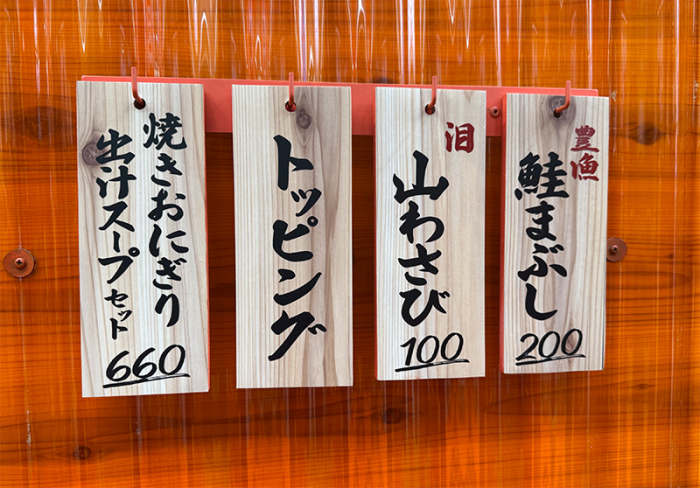 焼きおにぎり
出汁スープセット
660
トッピング
泪
山わさび
100
豊漁
鮭まぶし
200